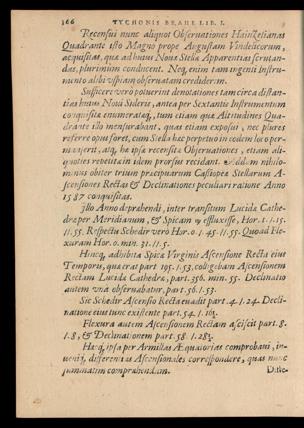 366 TYCHONIS BRAHE LIB. I.
Recensui nunc aliquot Observationes Hainzelianas
Quadrante isto Magno prope Augustam Vindelicorum,
acquisitas, quæ ad huius Nouæ Stellæ Apparentias scrutan-
das, plurimum conducent. Neq; enim tam ingenti Instru-
mento alibi vspiam obseruatam crediderim.
Sufficere vero poterint denotationes tam circa distan-
tias huius Noui Sideris, antea per Sextantis Instrumentum
conquisita enumeratæq́;, tum etiam quæ Altitudines Qua-
drante isto mensurabant, quas etiam exposui, nec plures
referre opus foret, cum Stella hæc perpetuo in eodem loco per-
manserit, atq́; hæ ipsæ recensitæ Observationes, etiam ali-
quoties repetitæ in idem prorsus recidant. Addam nihilo-
minus obiter trium præcipuarum Cassiopeæ Stellarum A-
scensiones Rectas & Declinationes peculiari ratione Anno
1587 conquisitas.
Isto Anno deprehendi, inter transitum Lucidæ Cathe-
dræ per Meridianum, & Spicam ♍ effluxisse, Hor. 1. 1. 15.
11. 55. Respectu Schedir vero Hor. 0. 1. 45. 11. 55. Quo ad Fle-
xuram Hor. 0. min. 31. 11. 5.
Hincq́;, adhibita Spicæ Virginis Ascensione Recta eius
Temporis, quæ erat part 195. 1. 53. colligebam Ascensionem
Rectam Lucidæ Cathedræ, part. 356. min. 55. Declinatio
autem vnà observabatur, part. 56. 1. 53.
Sic Schedir Ascensio Recta euadit part. 4. 1. 24. Decli-
natione eius tunc existente part. 54. 1. 16½.
Flexura autem Ascensionem Rectam asciscit part. 8.
1. 8, & Declinationem part. 58. 1. 28½.
Hæcq́; ipsa per Armillas Æquatorias comprobans, in-
ueni ijs differentias Ascensionales correspondere, quas nunc
summatim comprehendam.